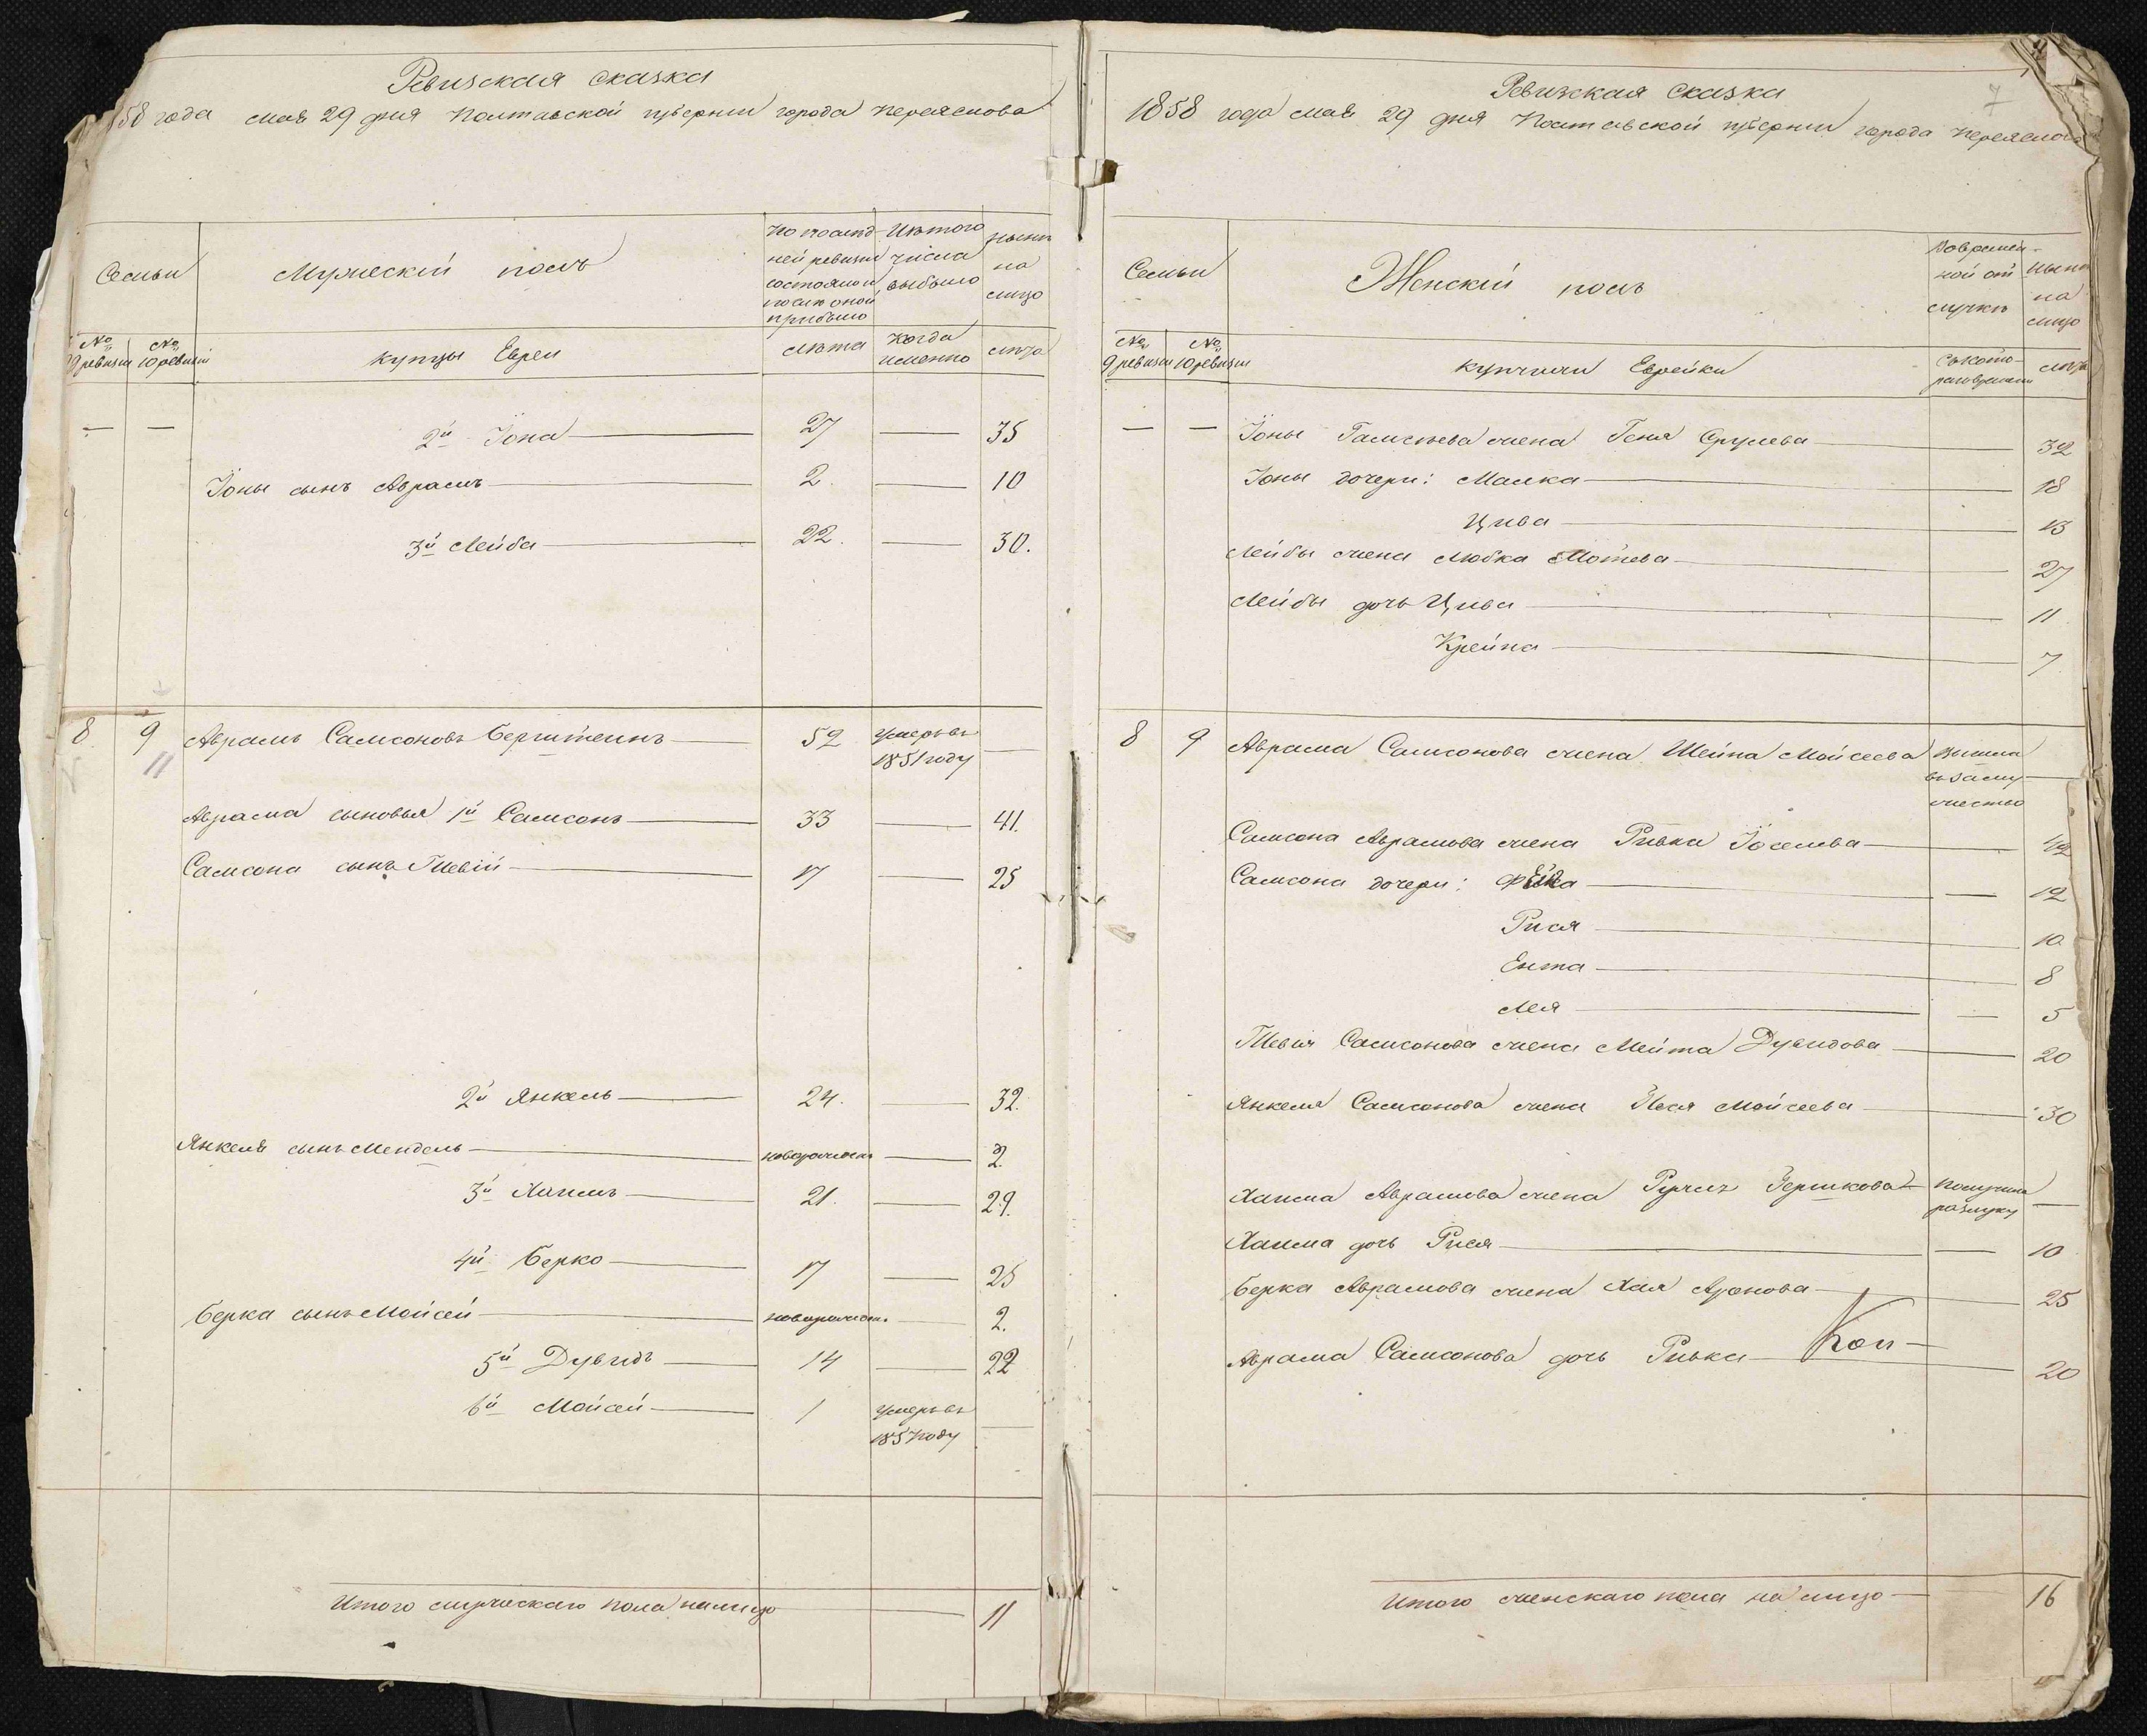 Ревизская сказка
1858 года мая 29 дня Полтавской губернии города Переяслова
Семьи
Мужескій полъ
По послѣд-
ней ревизіи
состояло и
послѣ оной
прибыло
Изъ того
числа
выбыло
Нынѣ
на
лицо
№
9 ревизіи
№
10 ревизіи
купцы Евреи
лѣта
Когда
именно
лѣта
— — 2й Іона — 27 — 35
Іоны сынъ Абрамъ — 2 — 10
3й Лейба — 22. — 30.
8 9 Абрамъ Самсоновъ Берштеинъ — 52 умеръ въ 1851 году —
11
Абрама сыновья 1й Самсонъ — 33 — 41.
Самсона сынъ Тевій — 17 — 25
2й Янкель — 24. — 32.
Янкеля сынъ Мендель — новорожденъ — 2.
3й Хаимъ — 21. — 29.
4й Берко — 17 — 25
Берка сынъ Мойсей — новорожден. — 2.
5й Дувидъ — 14 — 22
6й Мойсей — 1 умеръ въ 1857 году —
Итого мужескаго пола налицо — 11
7
Ревизская Сказка
1858 года мая 29 дня Полтавской губернии города Переяслова
Семьи
Женскій полъ
Во времен-
ной от
лучкѣ
Нынѣ
на
лицо
№
9 ревизіи
№
10 ревизіи
купчихи Еврейки
Съ кото-
раго времени
лѣта
— — Іоны жена Геня Срулева — 32
Іоны дочери: Малка — 18
Цива — 13
Лейбы жена Любка Мотева — 27
Лейбы дочь Цива — 11
Крейна — 7
8 9 Абрама Самсонова жена Шейна Мойсеева вышла въ замужество —
Самсона Абрамова жена Ривка Іоселева — 42
Самсона дочери: — 12
Рися — 10.
Ента — 8
Лея — 5
Тевія Самсонова жена Мейта Дувидова — 20
Янкеля Самсонова жена Песя Мойсеева — 30
Хаима Абрамова жена Гершкова — получила разлуку —
Хаима дочь Рися — 10
Берка Абрамова жена Хая Аронова — 25
Абрама Самсонова дочь Ривка — 20
Коп-
Итого женскаго пола на лицо — 16